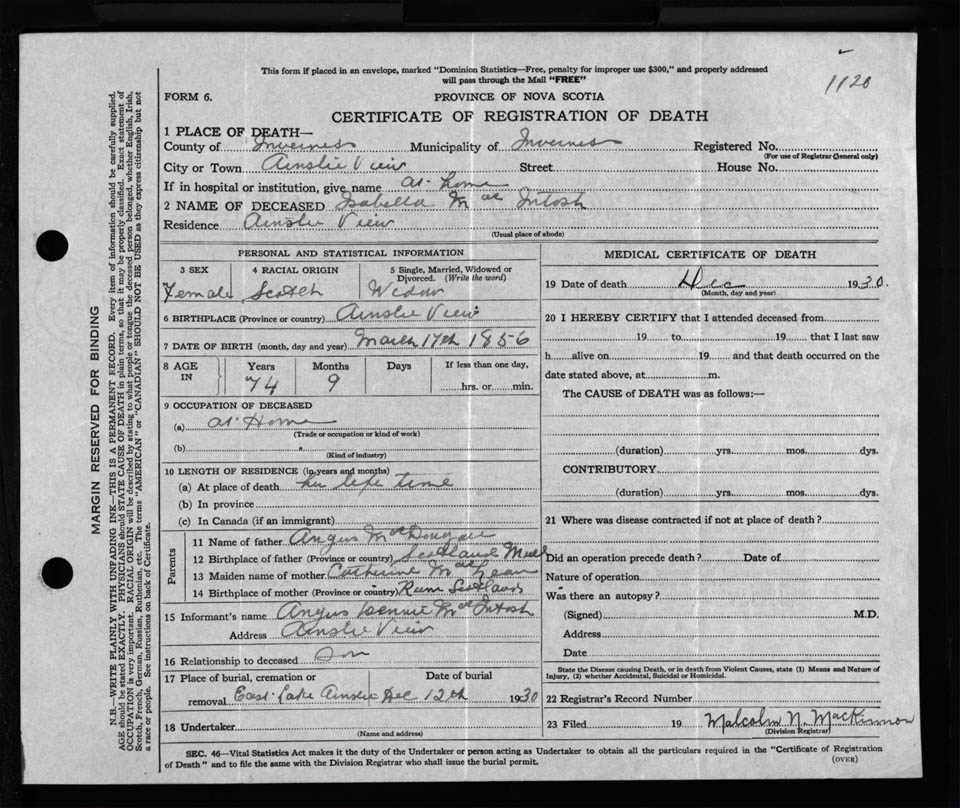 1120
This form if placed in an envelope, marked "Dominion Statistics—Free, penalty for improper use $300," and properly addressed
will pass through the Mail "FREE"
FORM 6.
PROVINCE OF NOVA SCOTIA
CERTIFICATE OF REGISTRATION OF DEATH
1 PLACE OF DEATH—
County of Inverness Municipality of Inverness Registered No.
(For use of Registrar General only)
City or Town Ainslie View Street House No.
If in hospital or institution, give name at home
2 NAME OF DECEASED Isabella Mac Intosh
Residence Ainslie View
(Usual place of abode)
PERSONAL AND STATISTICAL INFORMATION
3 SEX 4 RACIAL ORIGIN 5 Single, Married, Widowed or
Divorced. (Write the word)
Female Scotch Widow
6 BIRTHPLACE (Province or country) Ainslie View
7 DATE OF BIRTH (month, day and year) March 17th 1856
8 AGE IN Years Months Days If less than one day,
74 9 hrs. or min.
9 OCCUPATION OF DECEASED
(a) at Home
(Trade or occupation or kind of work)
(b)
(Kind of industry)
10 LENGTH OF RESIDENCE (in years and months)
(a) At place of death her life time
(b) In province
(c) In Canada (if an immigrant)
Parents
11 Name of father Angus MacDougall
12 Birthplace of father (Province or country) Scotland Mull
13 Maiden name of mother Catherine MacLean
14 Birthplace of mother (Province or country) Rum Scotland
15 Informant's name Angus Mac Intosh
Address Ainslie View
16 Relationship to deceased Son
17 Place of burial, cremation or Date of burial
removal East Lake Ainslie Dec 12th 1930
18 Undertaker
(Name and address)
MEDICAL CERTIFICATE OF DEATH
19 Date of death Dec 1930.
(Month, day and year)
20 I HEREBY CERTIFY that I attended deceased from
19 to 19 that I last saw
h alive on 19 and that death occurred on the
date stated above, at m.
The CAUSE of DEATH was as follows:—
(duration) yrs. mos. dys.
CONTRIBUTORY
(duration) yrs. mos. dys.
21 Where was disease contracted if not at place of death?
Did an operation precede death? Date of
Nature of operation
Was there an autopsy?
(Signed) M.D.
Address
Date
State the Disease causing Death, or in death from Violent Causes, state (1) Means and Nature of
Injury, (2) whether Accidental, Suicidal or Homicidal.
22 Registrar's Record Number
23 Filed 19 Malcolm N. MacKinnon
(Division Registrar)
SEC. 46—Vital Statistics Act makes it the duty of the Undertaker or person acting as Undertaker to obtain all the particulars required in the "Certificate of Registration
of Death" and to file the same with the Division Registrar who shall issue the burial permit.
(OVER)
MARGIN RESERVED FOR BINDING
N.B.—WRITE PLAINLY WITH UNFADING INK—THIS IS A PERMANENT RECORD. Every item of information should be carefully supplied.
AGE should be stated EXACTLY. PHYSICIANS should STATE CAUSE OF DEATH in plain terms, so that it may be properly classified. Exact statement of
OCCUPATION is very important. RACIAL ORIGIN will be described by stating to what people or tongue the deceased person belonged, whether English, Irish,
Scotch, French, German, Russian, Ruthenian, etc. The terms "AMERICAN" or "CANADIAN" SHOULD NOT BE USED as they express citizenship but not
a race or people. See instructions on back of Certificate.